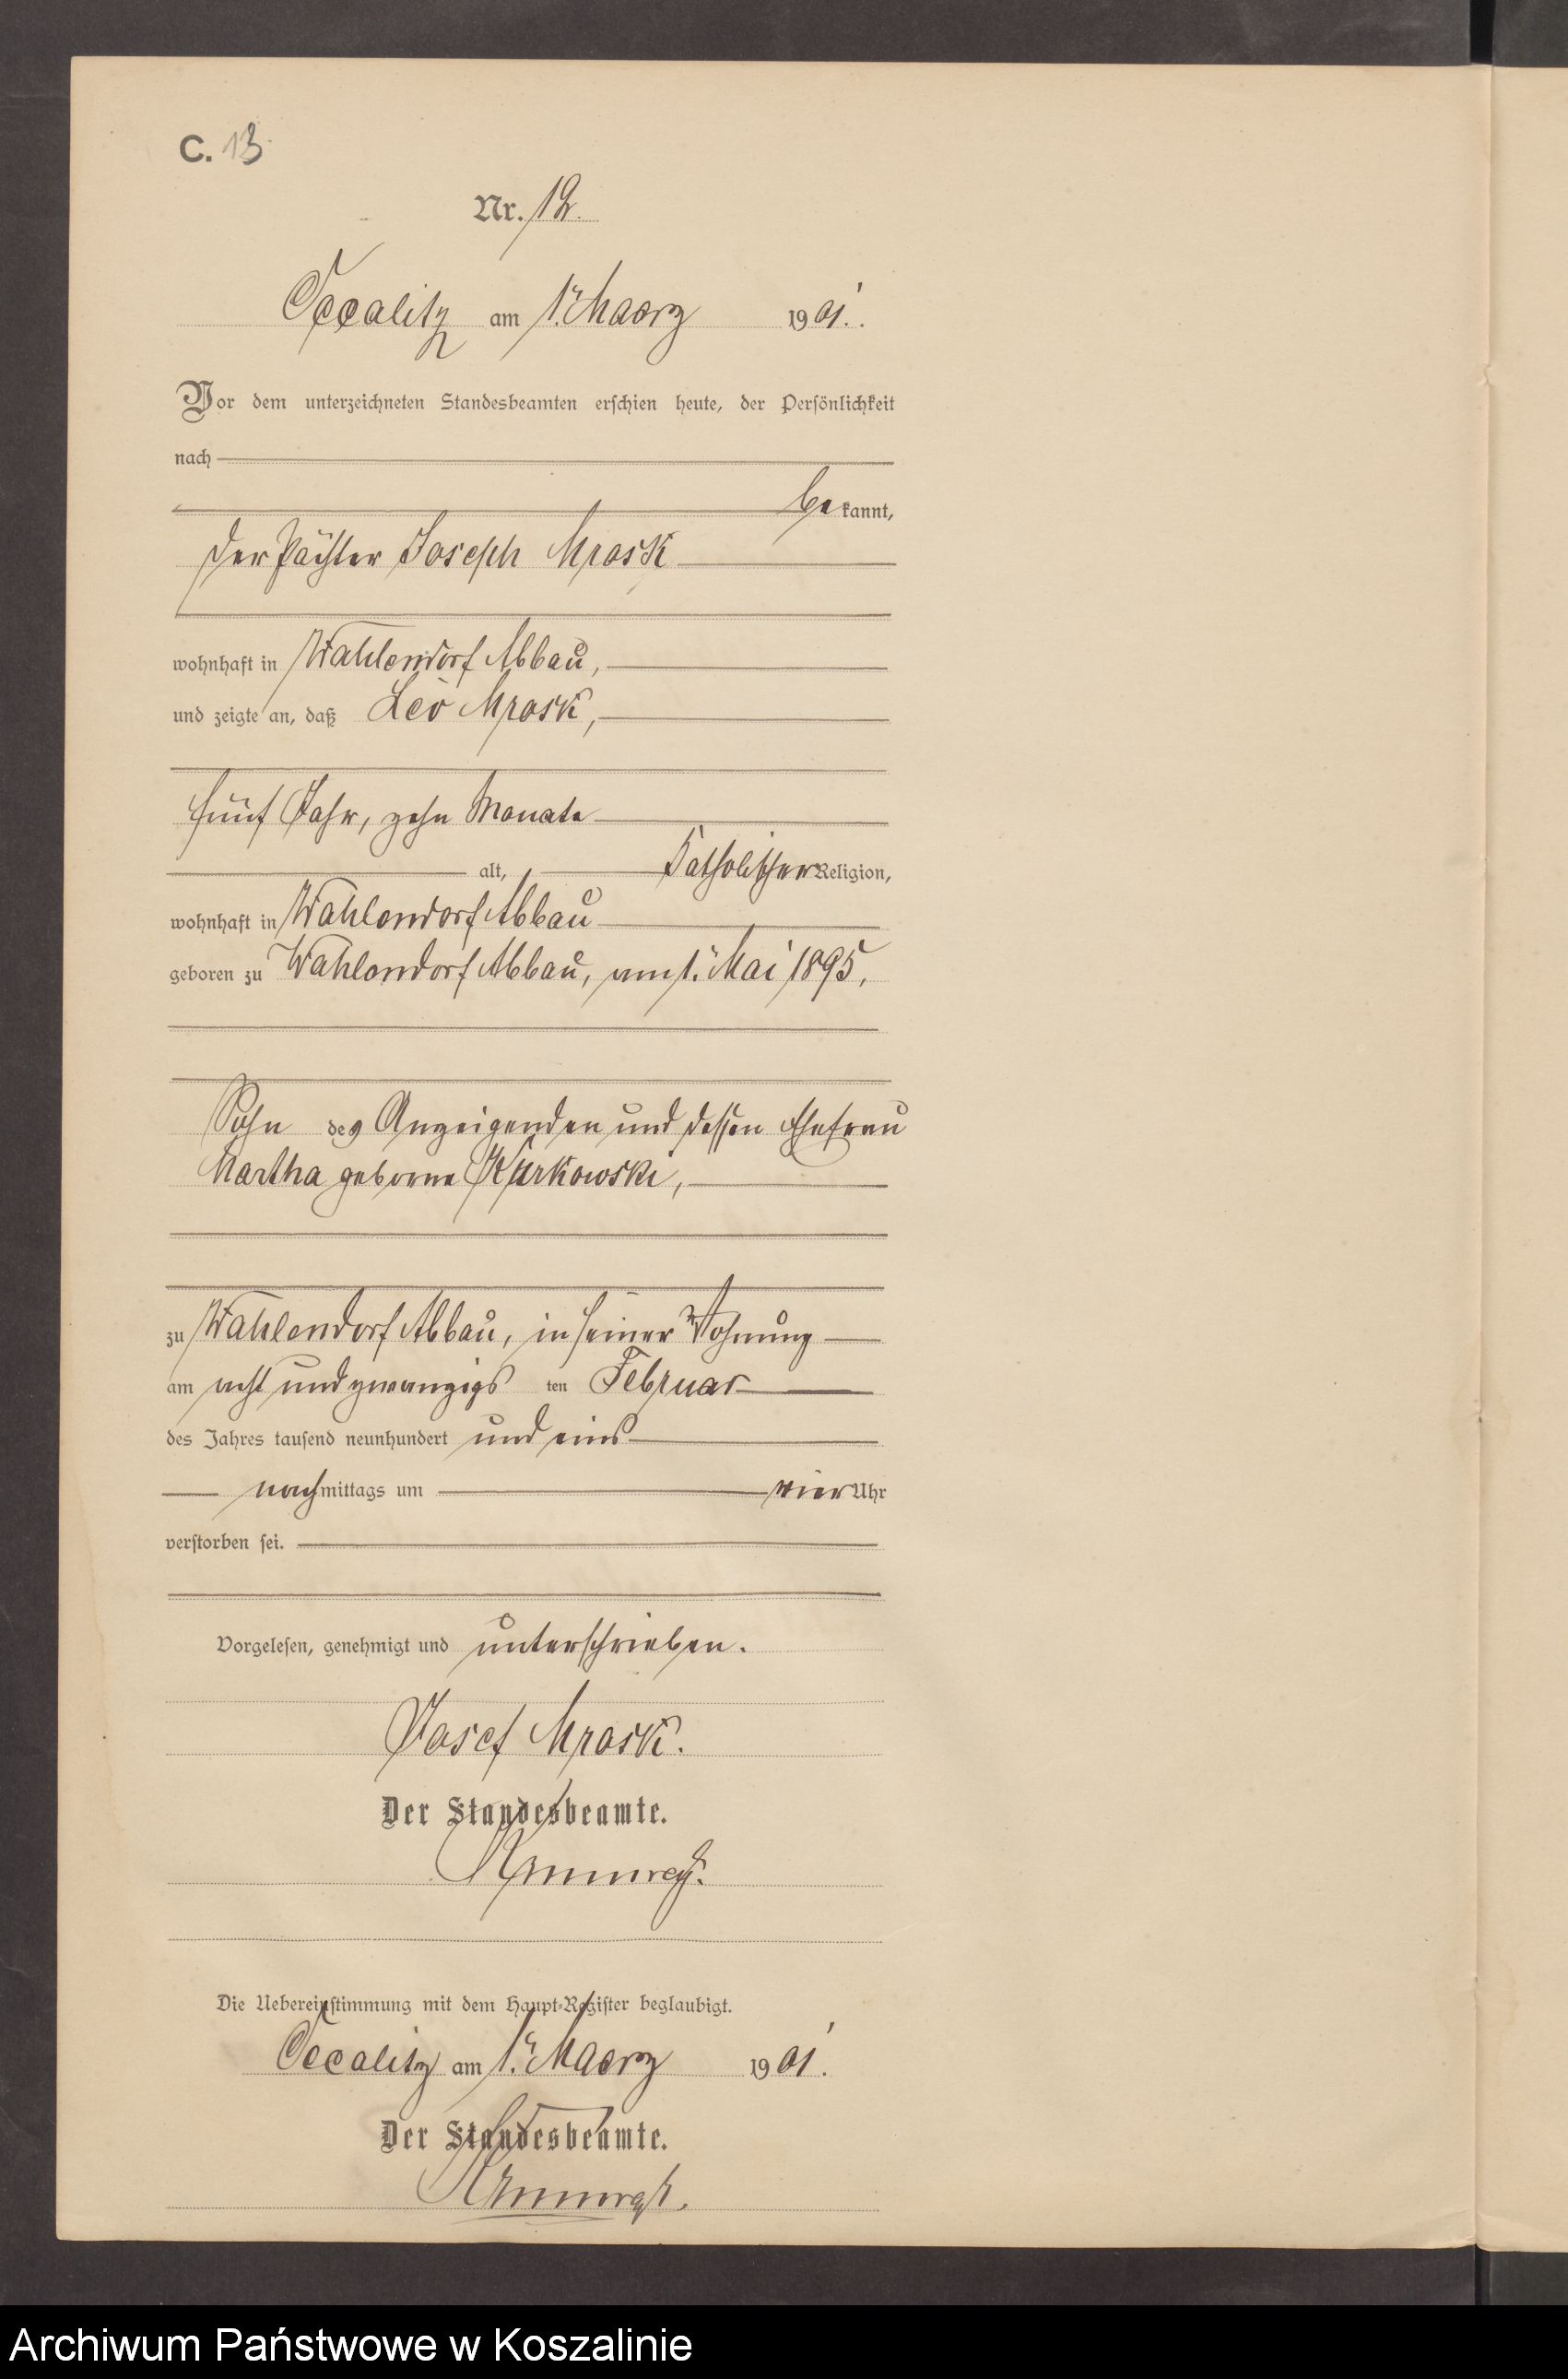 C. 13
Nr. 12.
Occalitz am 1. Maerz 1901.
Vor dem unterzeichneten Standesbeamten erschien heute, der Persönlichkeit
nach
bekannt,
der Pächter Joseph Mrosk
wohnhaft in Wahlendorf Abbau,
und zeigte an, daß Leo Mrosk,
fünf Jahr, zehn Monate
alt, Katholischer Religion,
wohnhaft in Wahlendorf Abbau
geboren zu Wahlendorf Abbau, am 1. Mai 1895,
Sohn des Anzeigenden und dessen Ehefrau
Martha geborne
zu Wahlendorf Abbau, in seiner Wohnung
am acht und zwanzigsten Februar
des Jahres tausend neunhundert und eins
nachmittags um vier Uhr
verstorben sei.
Vorgelesen, genehmigt und unterschrieben.
Josef Mrosk.
Der Standesbeamte.
Die Uebereinstimmung mit dem Haupt-Register beglaubigt.
Occalitz am 1. Maerz 1901.
Der Standesbeamte.
Archiwum Państwowe w Koszalinie